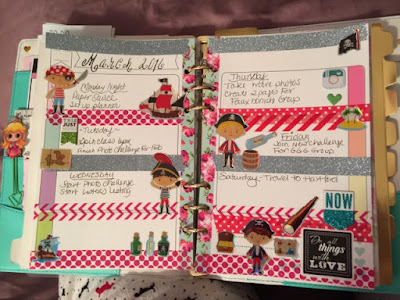 March 2016
Monday Night
Paper Dance
Set up planner
JUST
-Tuesday-
Finish Photo Challenge for Feb
Wednesday
Start Photo Challenge
Start Listing
Thursday-
Take more photos
Create 2 pages For
Faux Bonini Group
Friday
Join New challenge
For GSG Group
Saturday- Travel to Hartford
NOW
Do all
things
with
LOVE